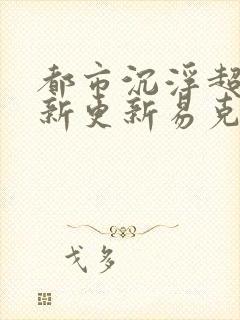 都市沉浮超
新更新易克
戈多